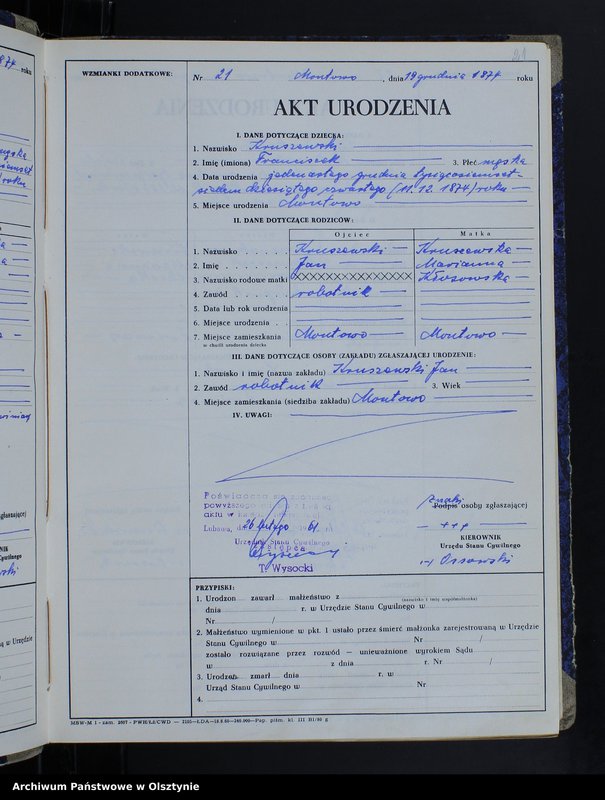 21
WZMIANKI DODATKOWE:
Nr 21 Montowo, dnia 19 grudnia 1874 roku
AKT URODZENIA
I. DANE DOTYCZĄCE DZIECKA:
1. Nazwisko Kruszewski
2. Imię (imiona) Franciszek 3. Płeć męska
4. Data urodzenia jedenastego grudnia tysiącosiemset-
siedemdziesiątego czwartego (11.12.1874) roku
5. Miejsce urodzenia Montowo
II. DANE DOTYCZĄCE RODZICÓW:
Ojciec Matka
1. Nazwisko Kruszewski Kruszewska
2. Imię Jan Marianna
3. Nazwisko rodowe matki XXXXXXXXXXXX Kłosowska
4. Zawód robotnik
5. Data lub rok urodzenia
6. Miejsce urodzenia
7. Miejsce zamieszkania Montowo Montowo
w chwili urodzenia dziecka
III. DANE DOTYCZĄCE OSOBY (ZAKŁADU) ZGŁASZAJĄCEJ URODZENIE:
1. Nazwisko i imię (nazwa zakładu) Kruszewski Jan
2. Zawód robotnik 3. Wiek
4. Miejsce zamieszkania (siedziba zakładu) Montowo
IV. UWAGI:
Poświadcza się zgodność
powyższego
aktu w
Lubawa, d. 26 lutego 1961
Urzędu Stanu Cywilnego
Zastępca
T. Wysocki
znaki
Podpis osoby zgłaszającej
+++
KIEROWNIK
Urzędu Stanu Cywilnego
-/ Ossowski
PRZYPISKI:
1. Urodzon zawarł małżeństwo z
(nazwisko i imię współmałżonka)
dnia r. w Urzędzie Stanu Cywilnego w
Nr /
2. Małżeństwo wymienione w pkt. 1 ustało przez śmierć małżonka zarejestrowaną w Urzędzie
Stanu Cywilnego w Nr /
zostało rozwiązane przez rozwód — unieważnione wyrokiem Sądu
w z dnia r. Nr /
3. Urodzon zmarł dnia r. w
Urząd Stanu Cywilnego w Nr
4.
Archiwum Państwowe w Olsztynie